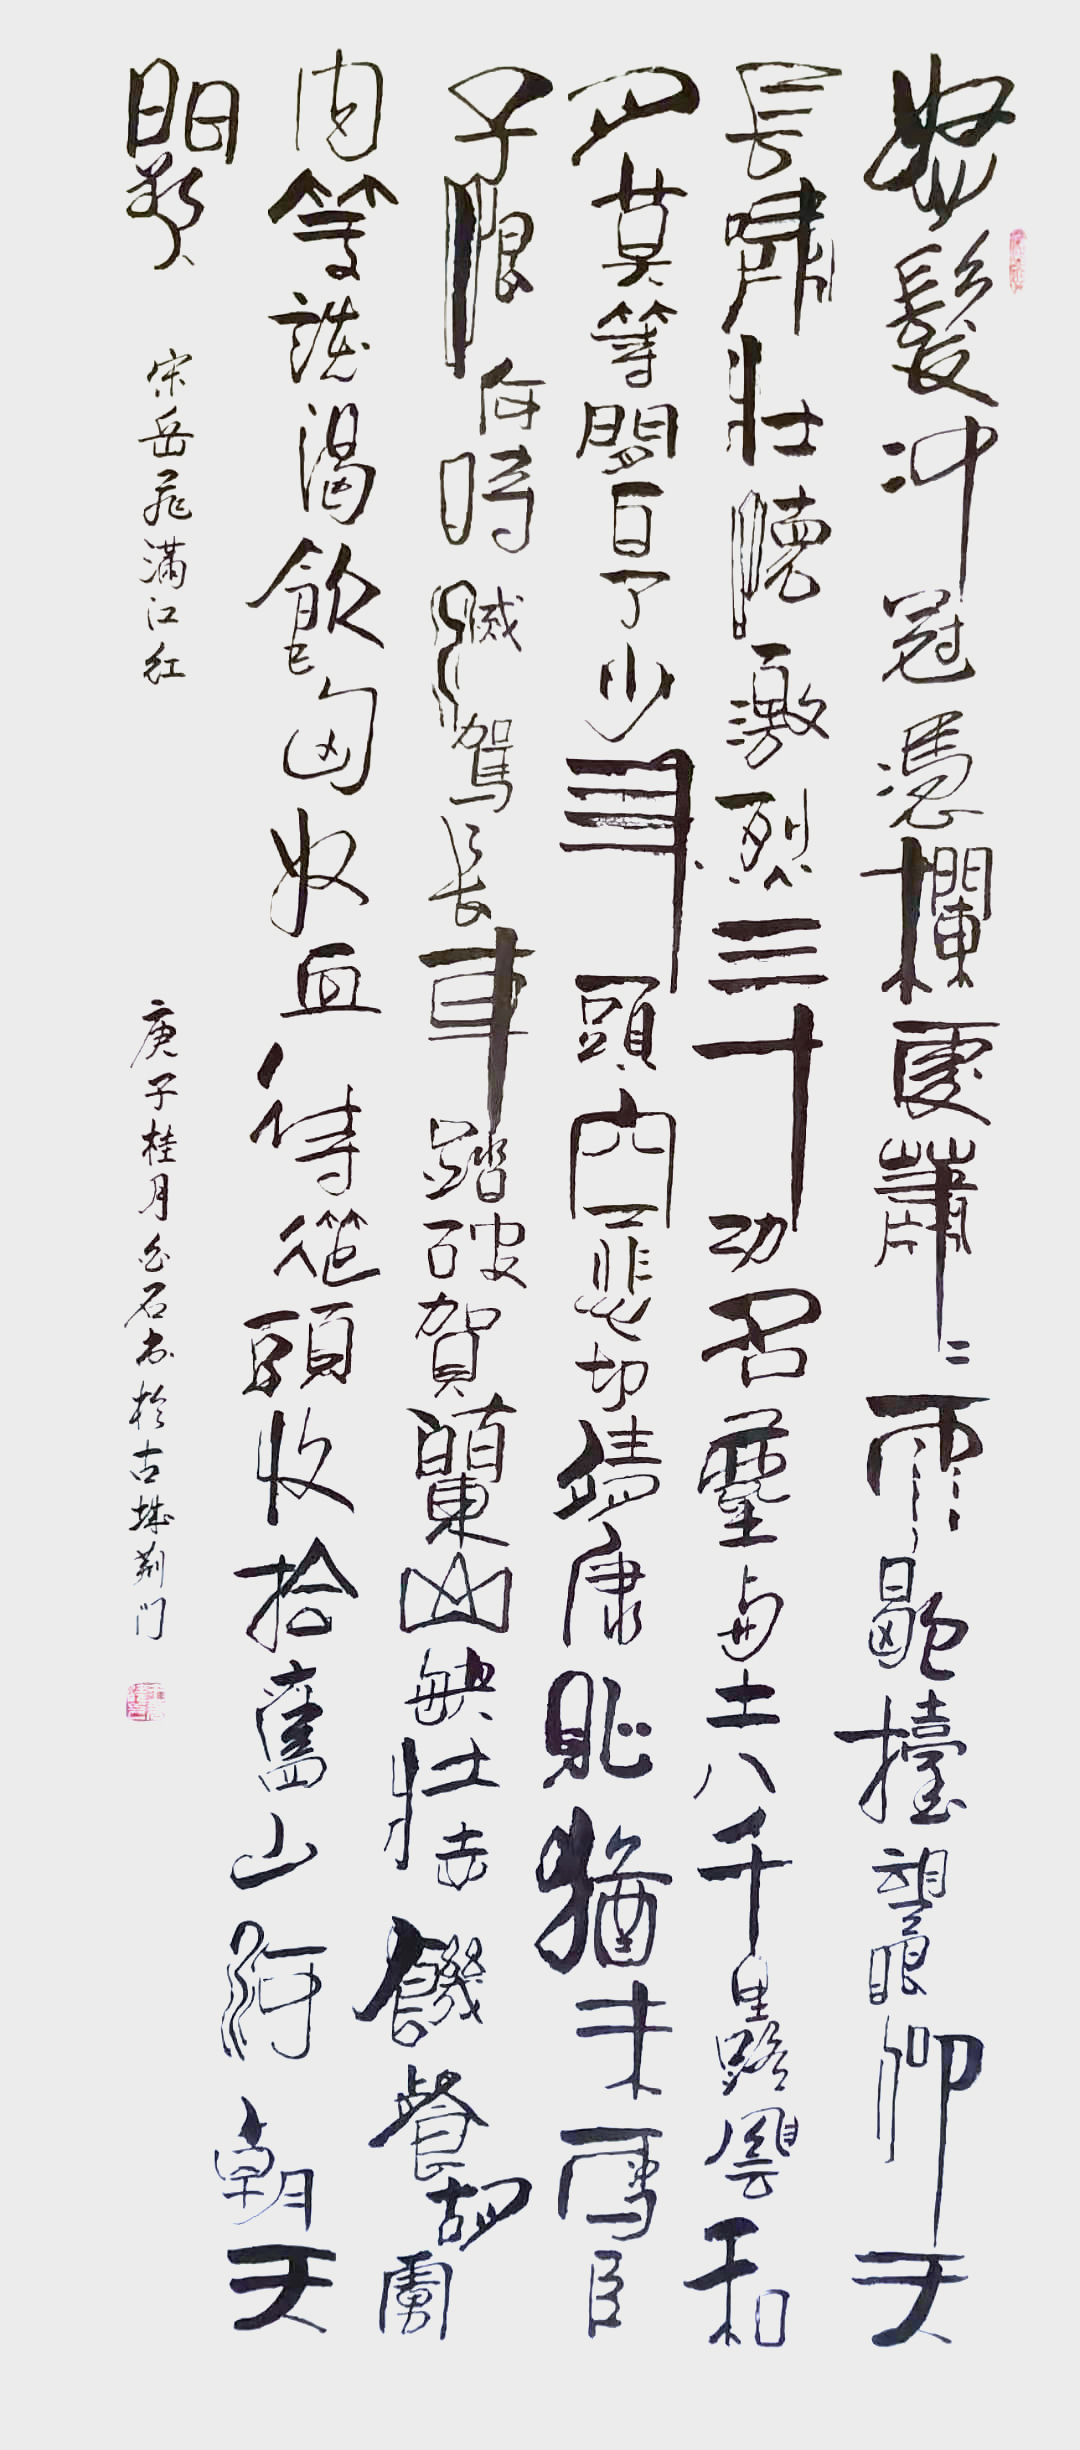 怒髮冲冠憑欄處蕭々雨歇擡望眼仰天
長嘯壯懷激烈三十功名塵与土八千里路雲和
月莫等閒白了少年頭空悲切靖康恥猶未雪臣
子恨何時滅駕長車踏破賀蘭山缺壯志饑餐胡虜
肉笑談渴飲匈奴血待從頭收拾舊山河朝天
闕
宋岳飛滿江紅
庚子桂月石書於古城荆门